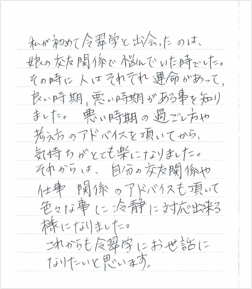 私が初めて令翠学と出会ったのは、
娘の交友関係で悩んでいた時でした。
その時に人はそれぞれ運命があって、
良い時期、悪い時期がある事を知り
ました。悪い時期の過ごし方や
考え方のアドバイスを頂いてから、
気持ちがとても楽になりました。
それからは、自分の交友関係や
仕事関係のアドバイスも頂いて
色々な事に冷静に対応出来る
様になりました。
これからも令翠学にお世話に
なりたいと思います。